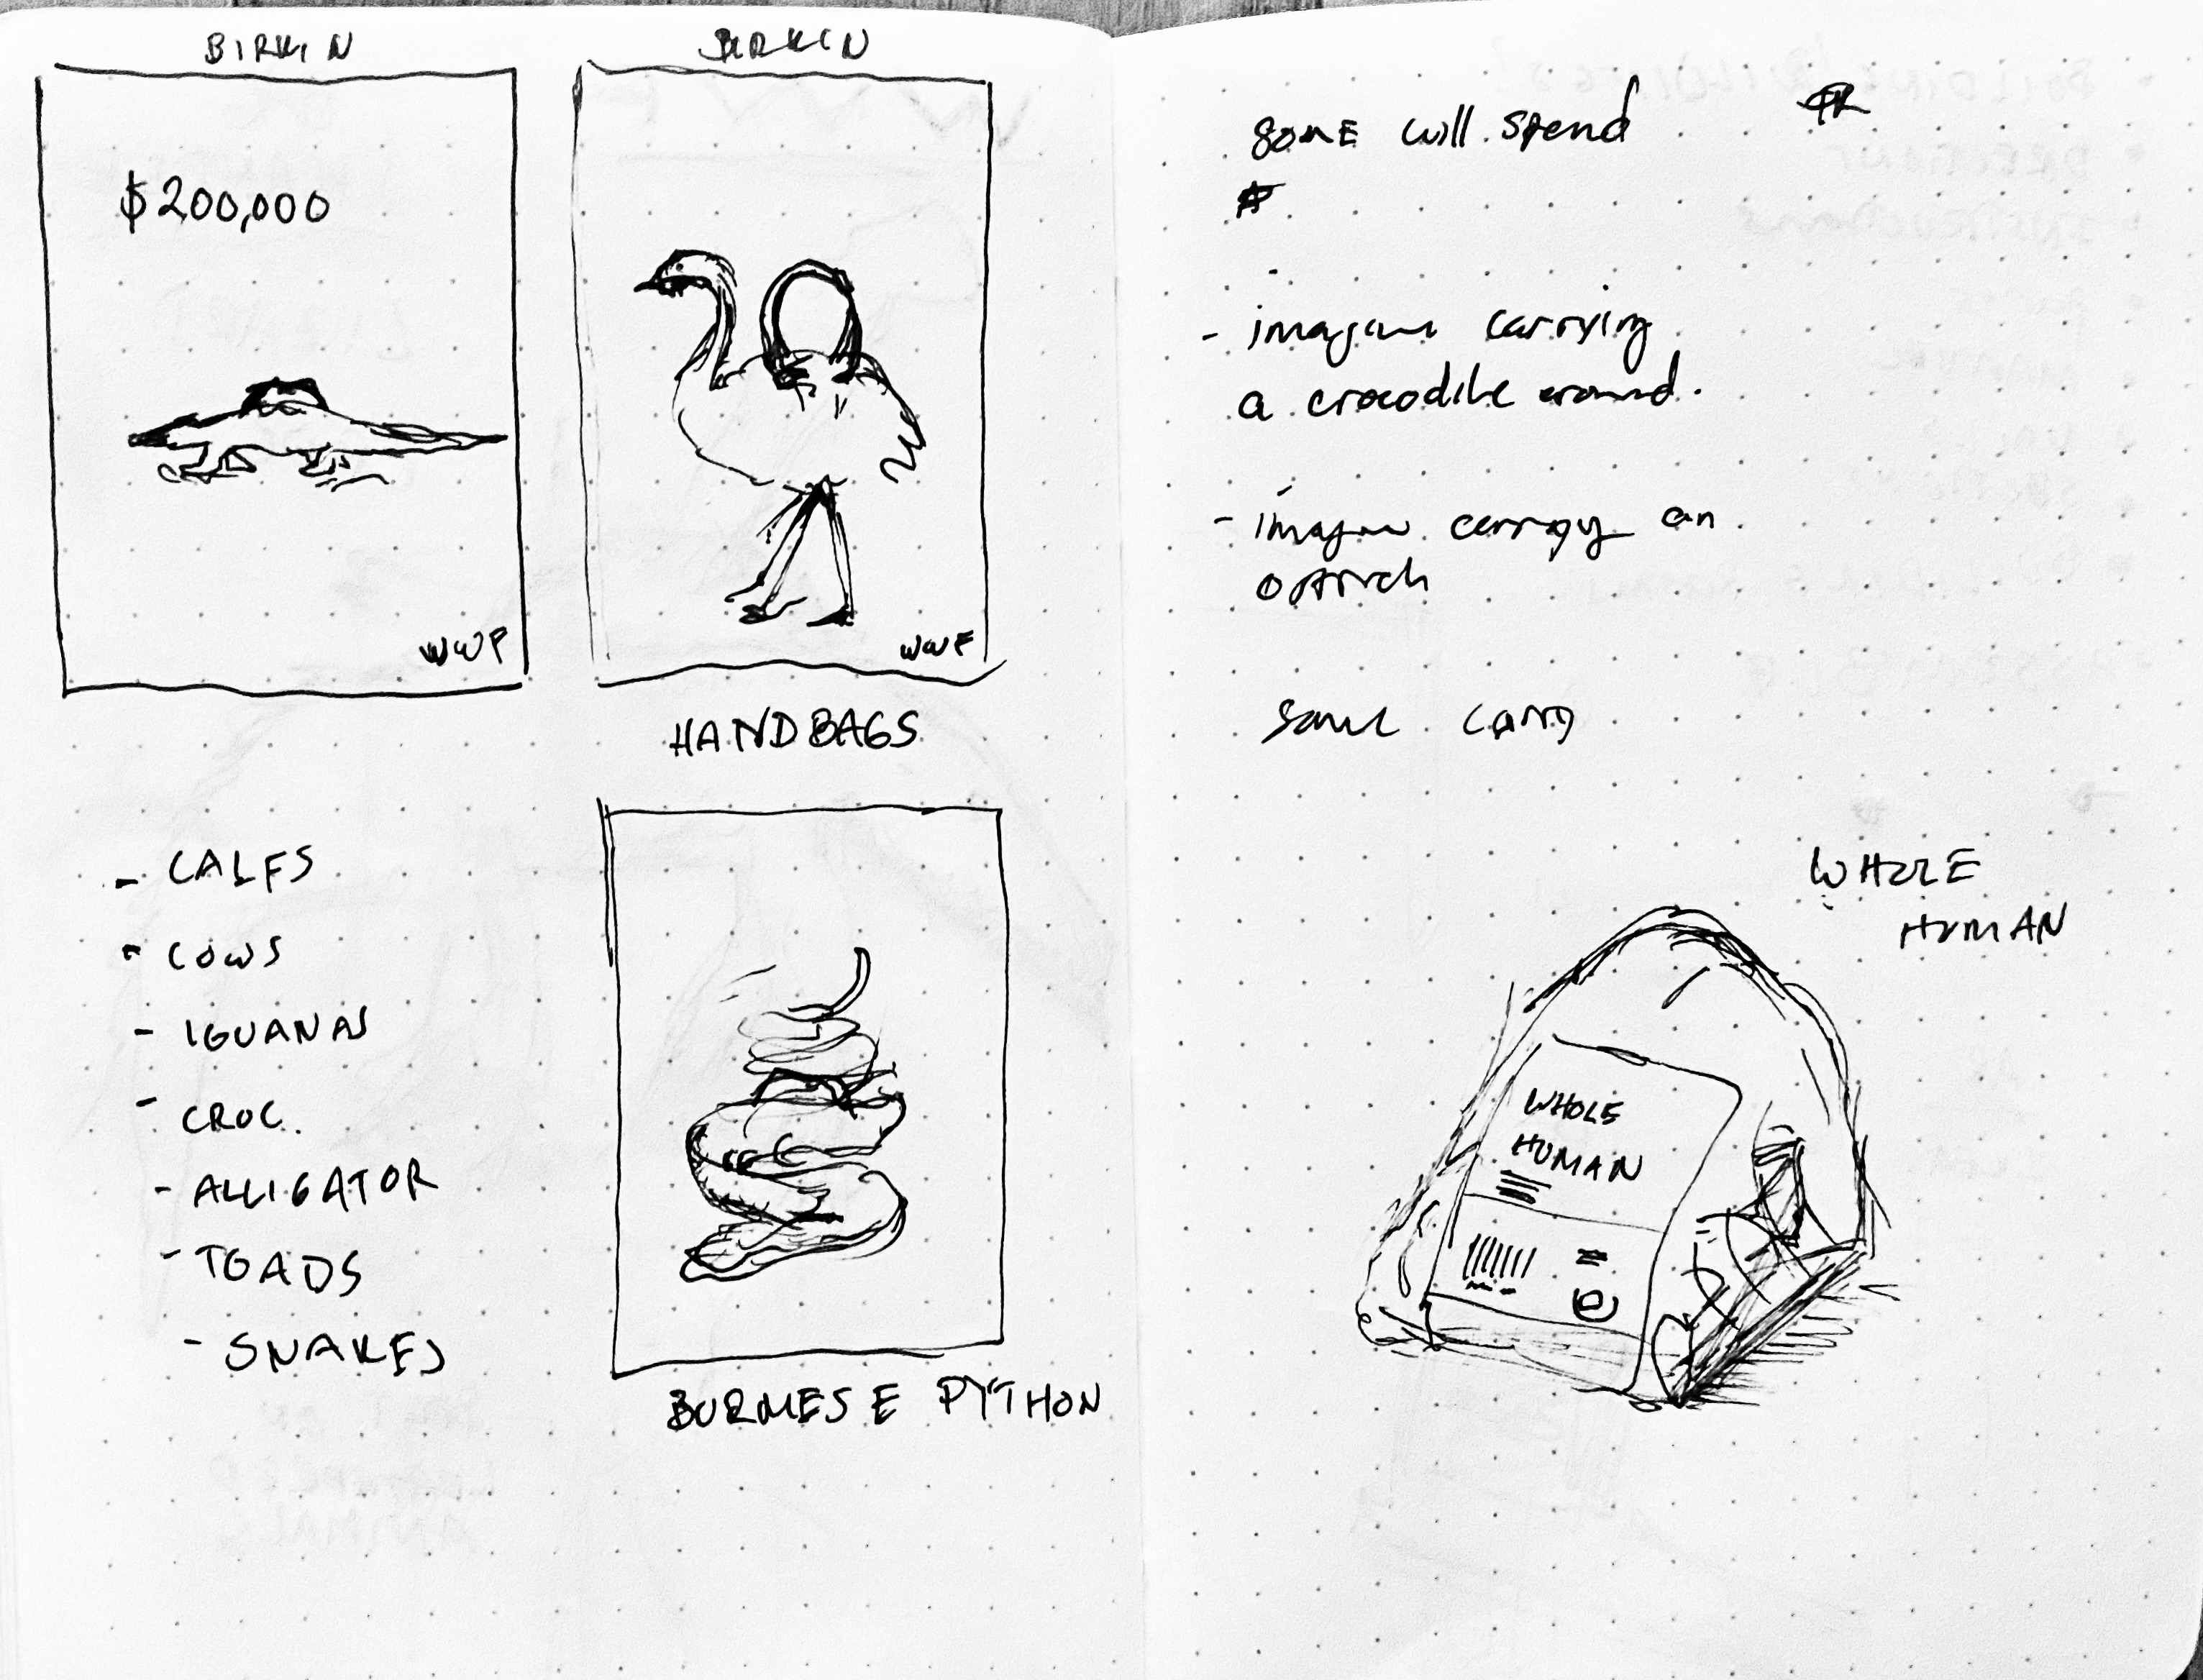 BIRKIN
$200,000
WWF
BIRKIN
WWF
HANDBAGS
- CALFS
- COWS
- IGUANAS
- CROC.
- ALLIGATOR
- TOADS
- SNAKES
BURMESE PYTHON
some will spend
- imagine carrying
a crocodile around.
- imagine carrying an
ostrich
some carry
WHOLE
HUMAN
WHOLE
HUMAN